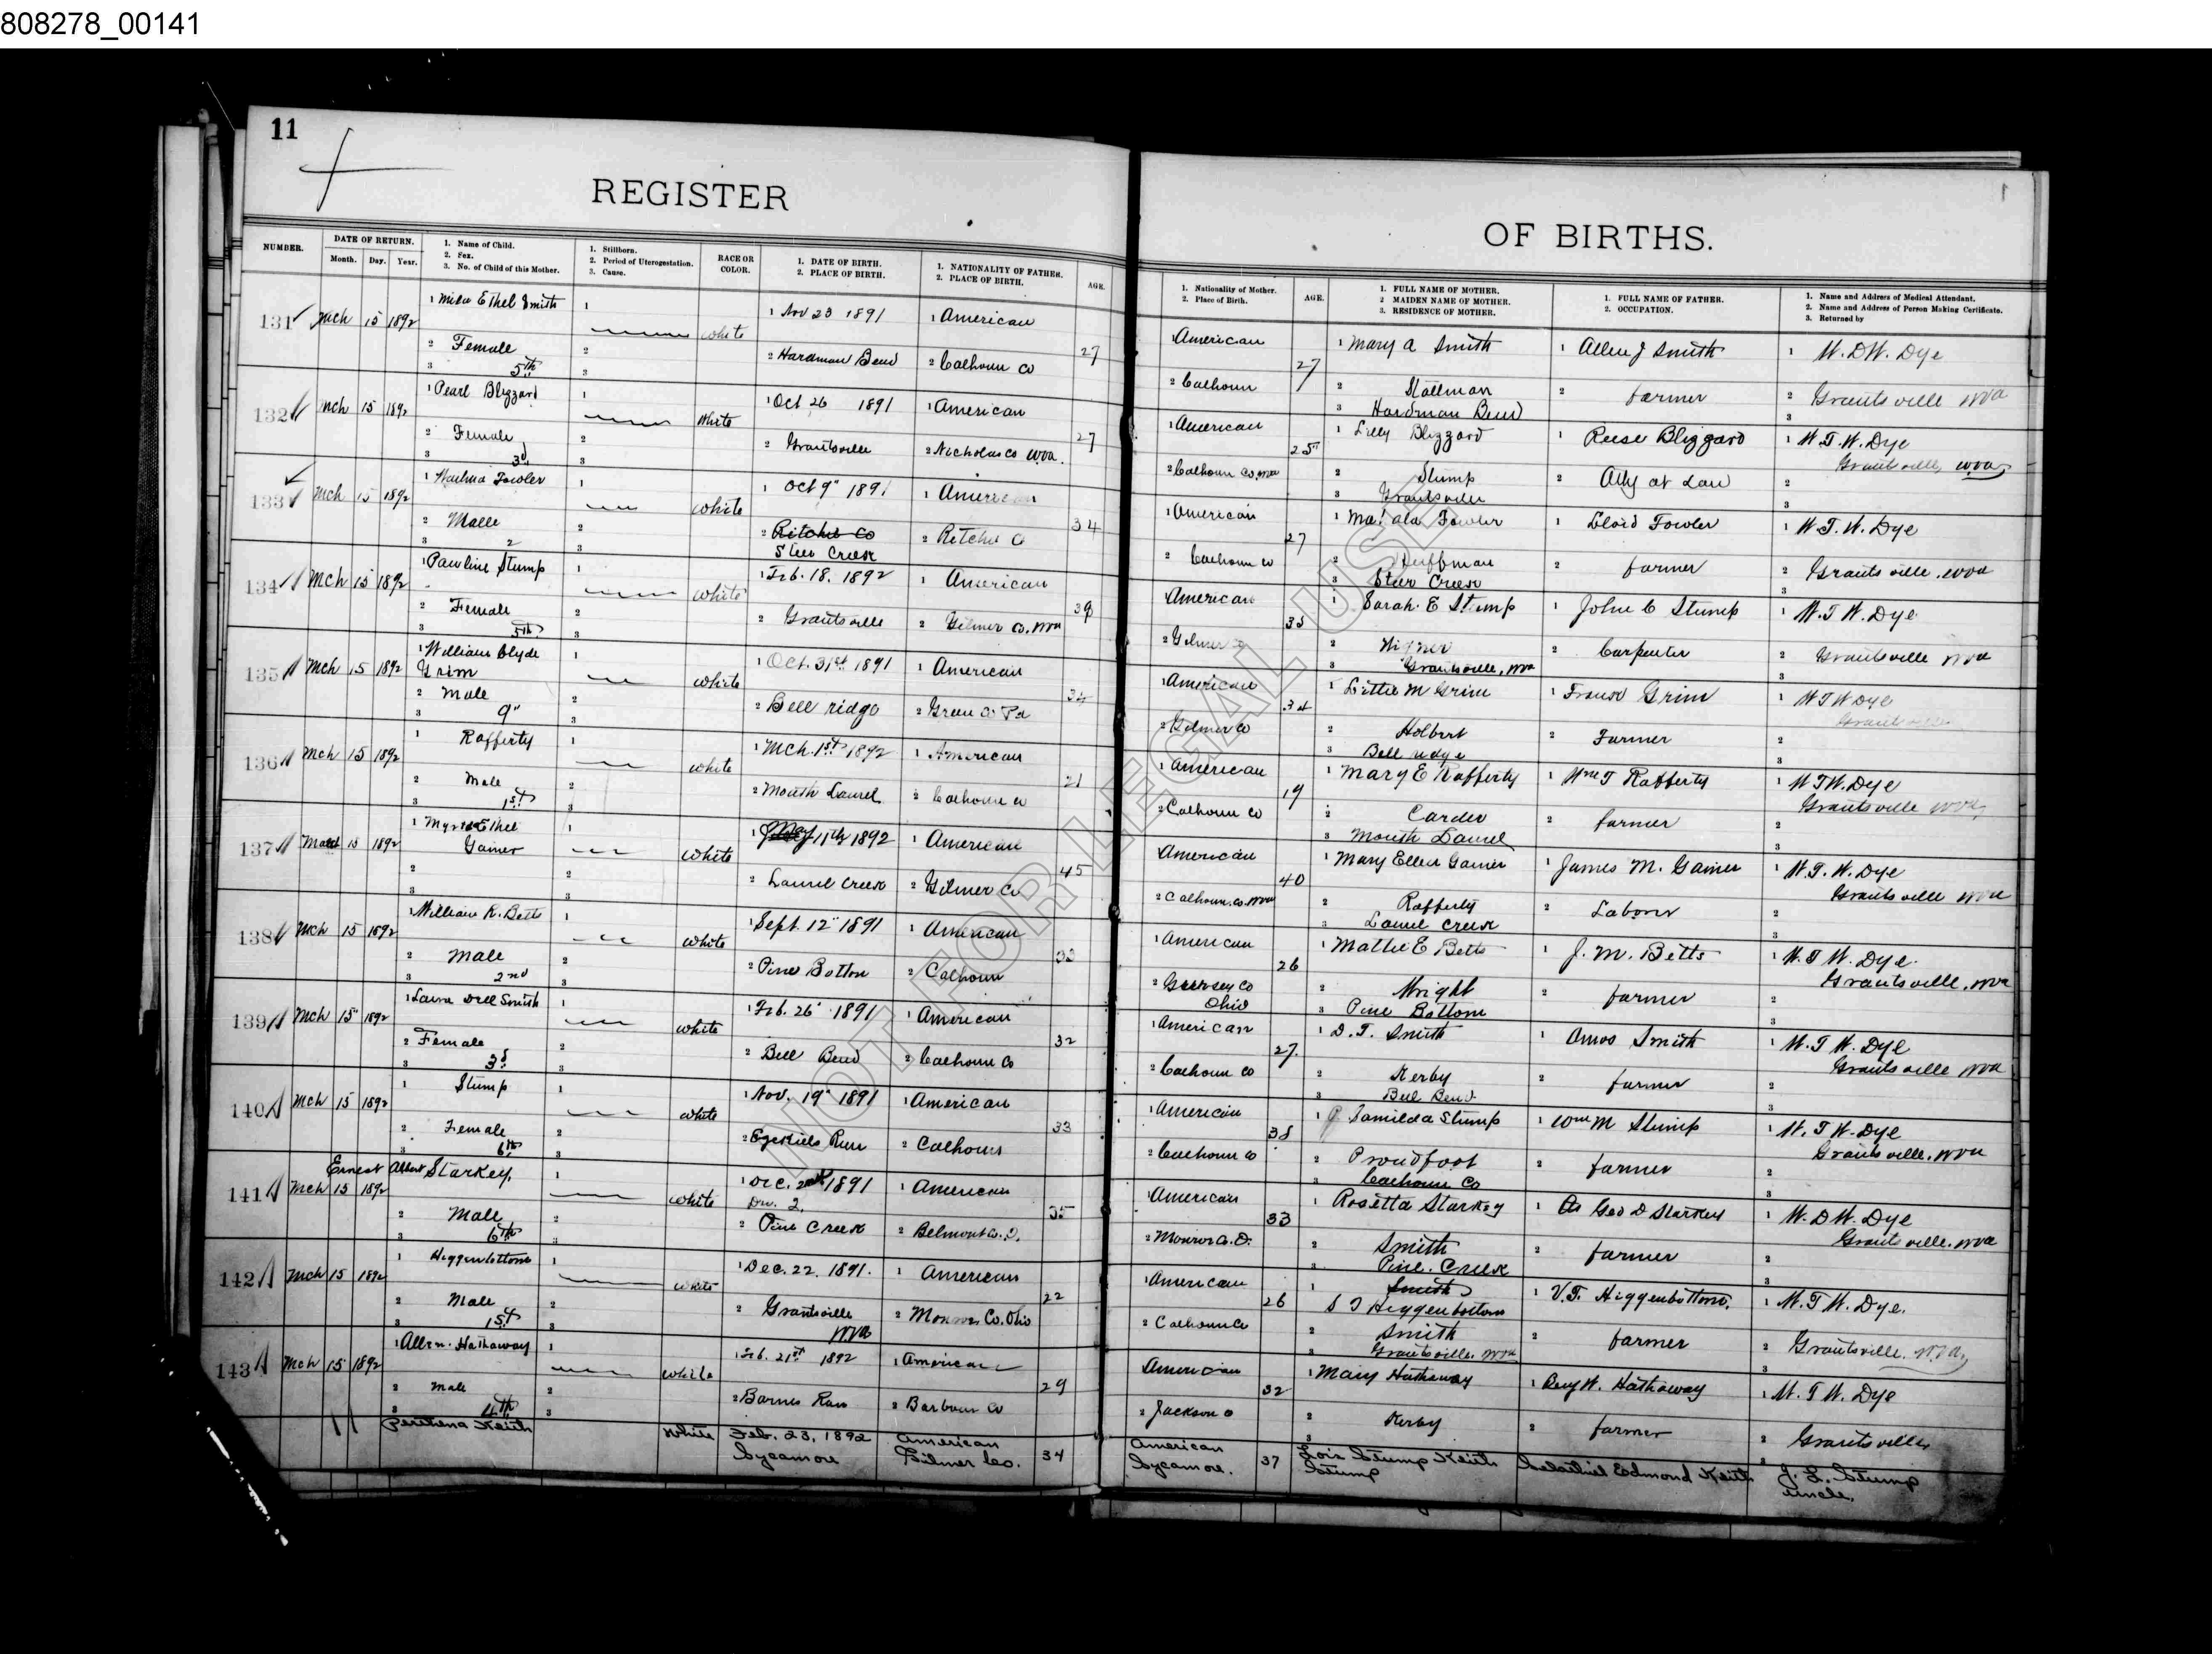 808278_00141
11
REGISTER
OF BIRTHS.
NUMBER.
DATE OF RETURN.
Month. Day. Year.
1. Name of Child.
2. Sex.
3. No. of Child of this Mother.
1. Stillborn.
2. Period of Uterogestation.
3. Cause.
RACE OR COLOR.
1. DATE OF BIRTH.
2. PLACE OF BIRTH.
1. NATIONALITY OF FATHER.
2. PLACE OF BIRTH.
AGE.
1. Nationality of Mother.
2. Place of Birth.
AGE.
1. FULL NAME OF MOTHER.
2 MAIDEN NAME OF MOTHER.
3. RESIDENCE OF MOTHER.
1. FULL NAME OF FATHER.
2. OCCUPATION.
1. Name and Address of Medical Attendant.
2. Name and Address of Person Making Certificate.
3. Returned by
131 Mch 15 1892 1 Ethel Smith 1 white 1 Nov 23 1891 1 American 27 1 American 27 1 Mary A Smith 1 Allen J Smith 1 W. DW. Dye
2 Female 2 2 Hardman Bend 2 Calhoun Co 2 Calhoun 2 Stallman 2 farmer 2 Grantsville wva
3 5th 3 3 Hardman Bend 3
132 Mch 15 1892 1 Pearl Blizzard 1 White 1 Oct 26 1891 1 American 27 1 American 25 1 Lilly Blizzard 1 Reese Blizzard 1 W. T. W. Dye
Grantsville, wva
2 Female 2 2 Grantsville 2 Nicholas Co wva. 2 Calhoun Co, wva 2 Stump 2 Atty at Law 2
3 3d 3 3 Grantsville 3
133 Mch 15 1892 1 Fowler 1 white 1 Oct 9" 1891 1 American 34 1 American 27 1 Fowler 1 Loid Fowler 1 W. T. W. Dye
2 Malle 2 2 Ritchie Co 2 Ritchie Co 2 Calhoun Co 2 Huffman 2 farmer 2 Grantsville, wva
3 2 3 Steer Creek 3 Steer Creek 3
134 Mch 15 1892 1 Pawline Stump 1 white 1 Feb. 18. 1892 1 American 39 American 35 1 Sarah. E Stump 1 John C Stump 1 W. T W. Dye
2 Female 2 2 Grantsville 2 Gilmer Co, wva 2 Gilmer Co 2 2 Carpenter 2 Grantsville wva
3 5th 3 3 Grantsville, wva 3
135 Mch 15 1892 1 William Clyde Grim 1 white 1 Oct. 31st 1891 1 American 34 1 American 34 1 Lettie M Grim 1 Frank Grim 1 W T W Dye
Grantsville
2 Male 2 2 Bell ridge 2 Green Co Pa 2 Gilmer Co 2 Holbert 2 Farmer 2
3 9" 3 3 Bell ridge 3
136 Mch 15 1892 1 Rafferty 1 white 1 Mch. 1st 1892 1 American 21 1 American 19 1 Mary E Rafferty 1 Wm T Rafferty 1 W T W. Dye
Grantsville wva,
2 Male 2 2 Mouth Laurel 2 Calhoun Co 2 Calhoun Co 2 Carder 2 farmer 2
3 1st 3 3 Mouth Laurel 3
137 15 1892 1 Ethel Gainer 1 white 1 May 11th 1892 1 American 45 American 40 1 Mary Ellen Gainer 1 James M. Gainer 1 W. T. W. Dye
Grantsville wva
2 2 2 Laurel Creek 2 Gilmer Co 2 Calhoun. Co. wva 2 Rafferty 2 Laborer 2
3 3 3 Laurel Creek 3
138 Mch 15 1892 1 William R. Betts 1 white 1 Sept. 12" 1891 1 American 33 1 American 26 1 Mattie E Betts 1 J. M. Betts 1 W. T W. Dye.
Grantsville, wva
2 Male 2 2 Pine Bottom 2 Calhoun 2 Guernsey Co Ohio 2 Wright 2 farmer 2
3 2nd 3 3 Pine Bottom 3
139 Mch 15" 1892 1 Laura Dell Smith 1 white 1 Feb. 26" 1891 1 American 32 1 American 27. 1 D. T. Smith 1 Amos Smith 1 W. T W. Dye
Grantsville wva
2 Female 2 2 Bell Bend 2 Calhoun Co 2 Calhoun Co 2 Kerby 2 farmer 2
3 3d 3 3 Bell Bend 3
140 Mch 15 1892 1 Stump 1 white 1 Nov. 19" 1891 1 American 33 1 American 38 1 Stump 1 Wm M Stump 1 W. T W. Dye
Grantsville, wva
2 Female 2 2 Ezekiels Run 2 Calhoun 2 Calhoun Co 2 Proudfoot 2 farmer 2
3 6th 3 3 Calhoun Co 3
141 Mch 15 1892 Ernest Albert Starkey. 1 white 1 Dec. 1891 1 American 35 1 American 33 1 Rosetta Starkey 1 Geo D Starkey 1 W. D W. Dye
Dec. 2. Grantsville. wva
2 Male 2 2 Pine Creek 2 Belmont Co. O. 2 Monroe Co. O. 2 Smith 2 farmer 2
3 6th 3 3 Pine. Creek 3
142 Mch 15 1892 1 Higgenbottom 1 white 1 Dec. 22. 1891. 1 American 22 1 American 26 1 Smith 1 V. T. Higgenbottom. 1 W. T W. Dye.
S T Higgenbottom
2 Male 2 2 Grantsville wva 2 Monroe Co. Ohio 2 Calhoun Co 2 Smith 2 farmer 2 Grantsville. wva,
3 1st 3 3 Grantsville. wva 3
143 Mch 15 1892 1 Allen. Hathaway 1 white 1 Feb. 21st 1892 1 American 29 American 32 1 Mary Hathaway 1 Benj W. Hathaway 1 W. T W. Dye
2 Male 2 2 Barnes Run 2 Barbour Co 2 Jackson Co 2 Kerby 2 farmer 2 Grantsville
3 4th 3 3 3
Perthena Keith White Feb. 23, 1892 American 34 American 37 Lois Stump Keith Salathiel Edmond Keith J. L. Stump
Sycamore Gilmer Co. Sycamore. Stump uncle.
NOT FOR LEGAL USE